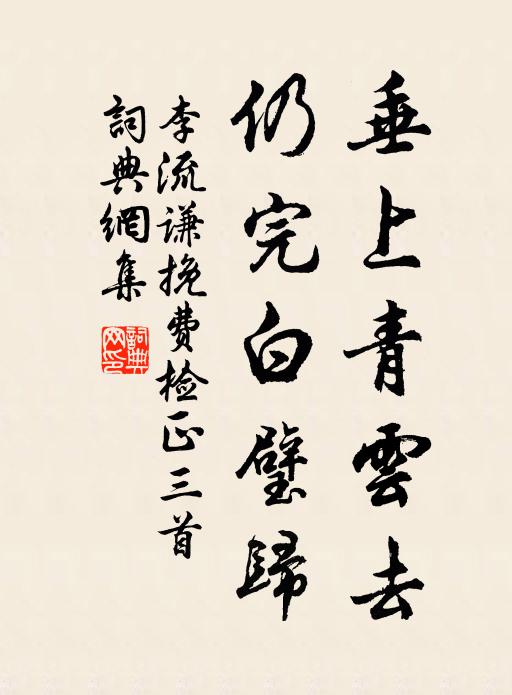 垂上青雲去
仍完白璧歸
李流謙挽費檢正三首
詞典網集
詞典網印